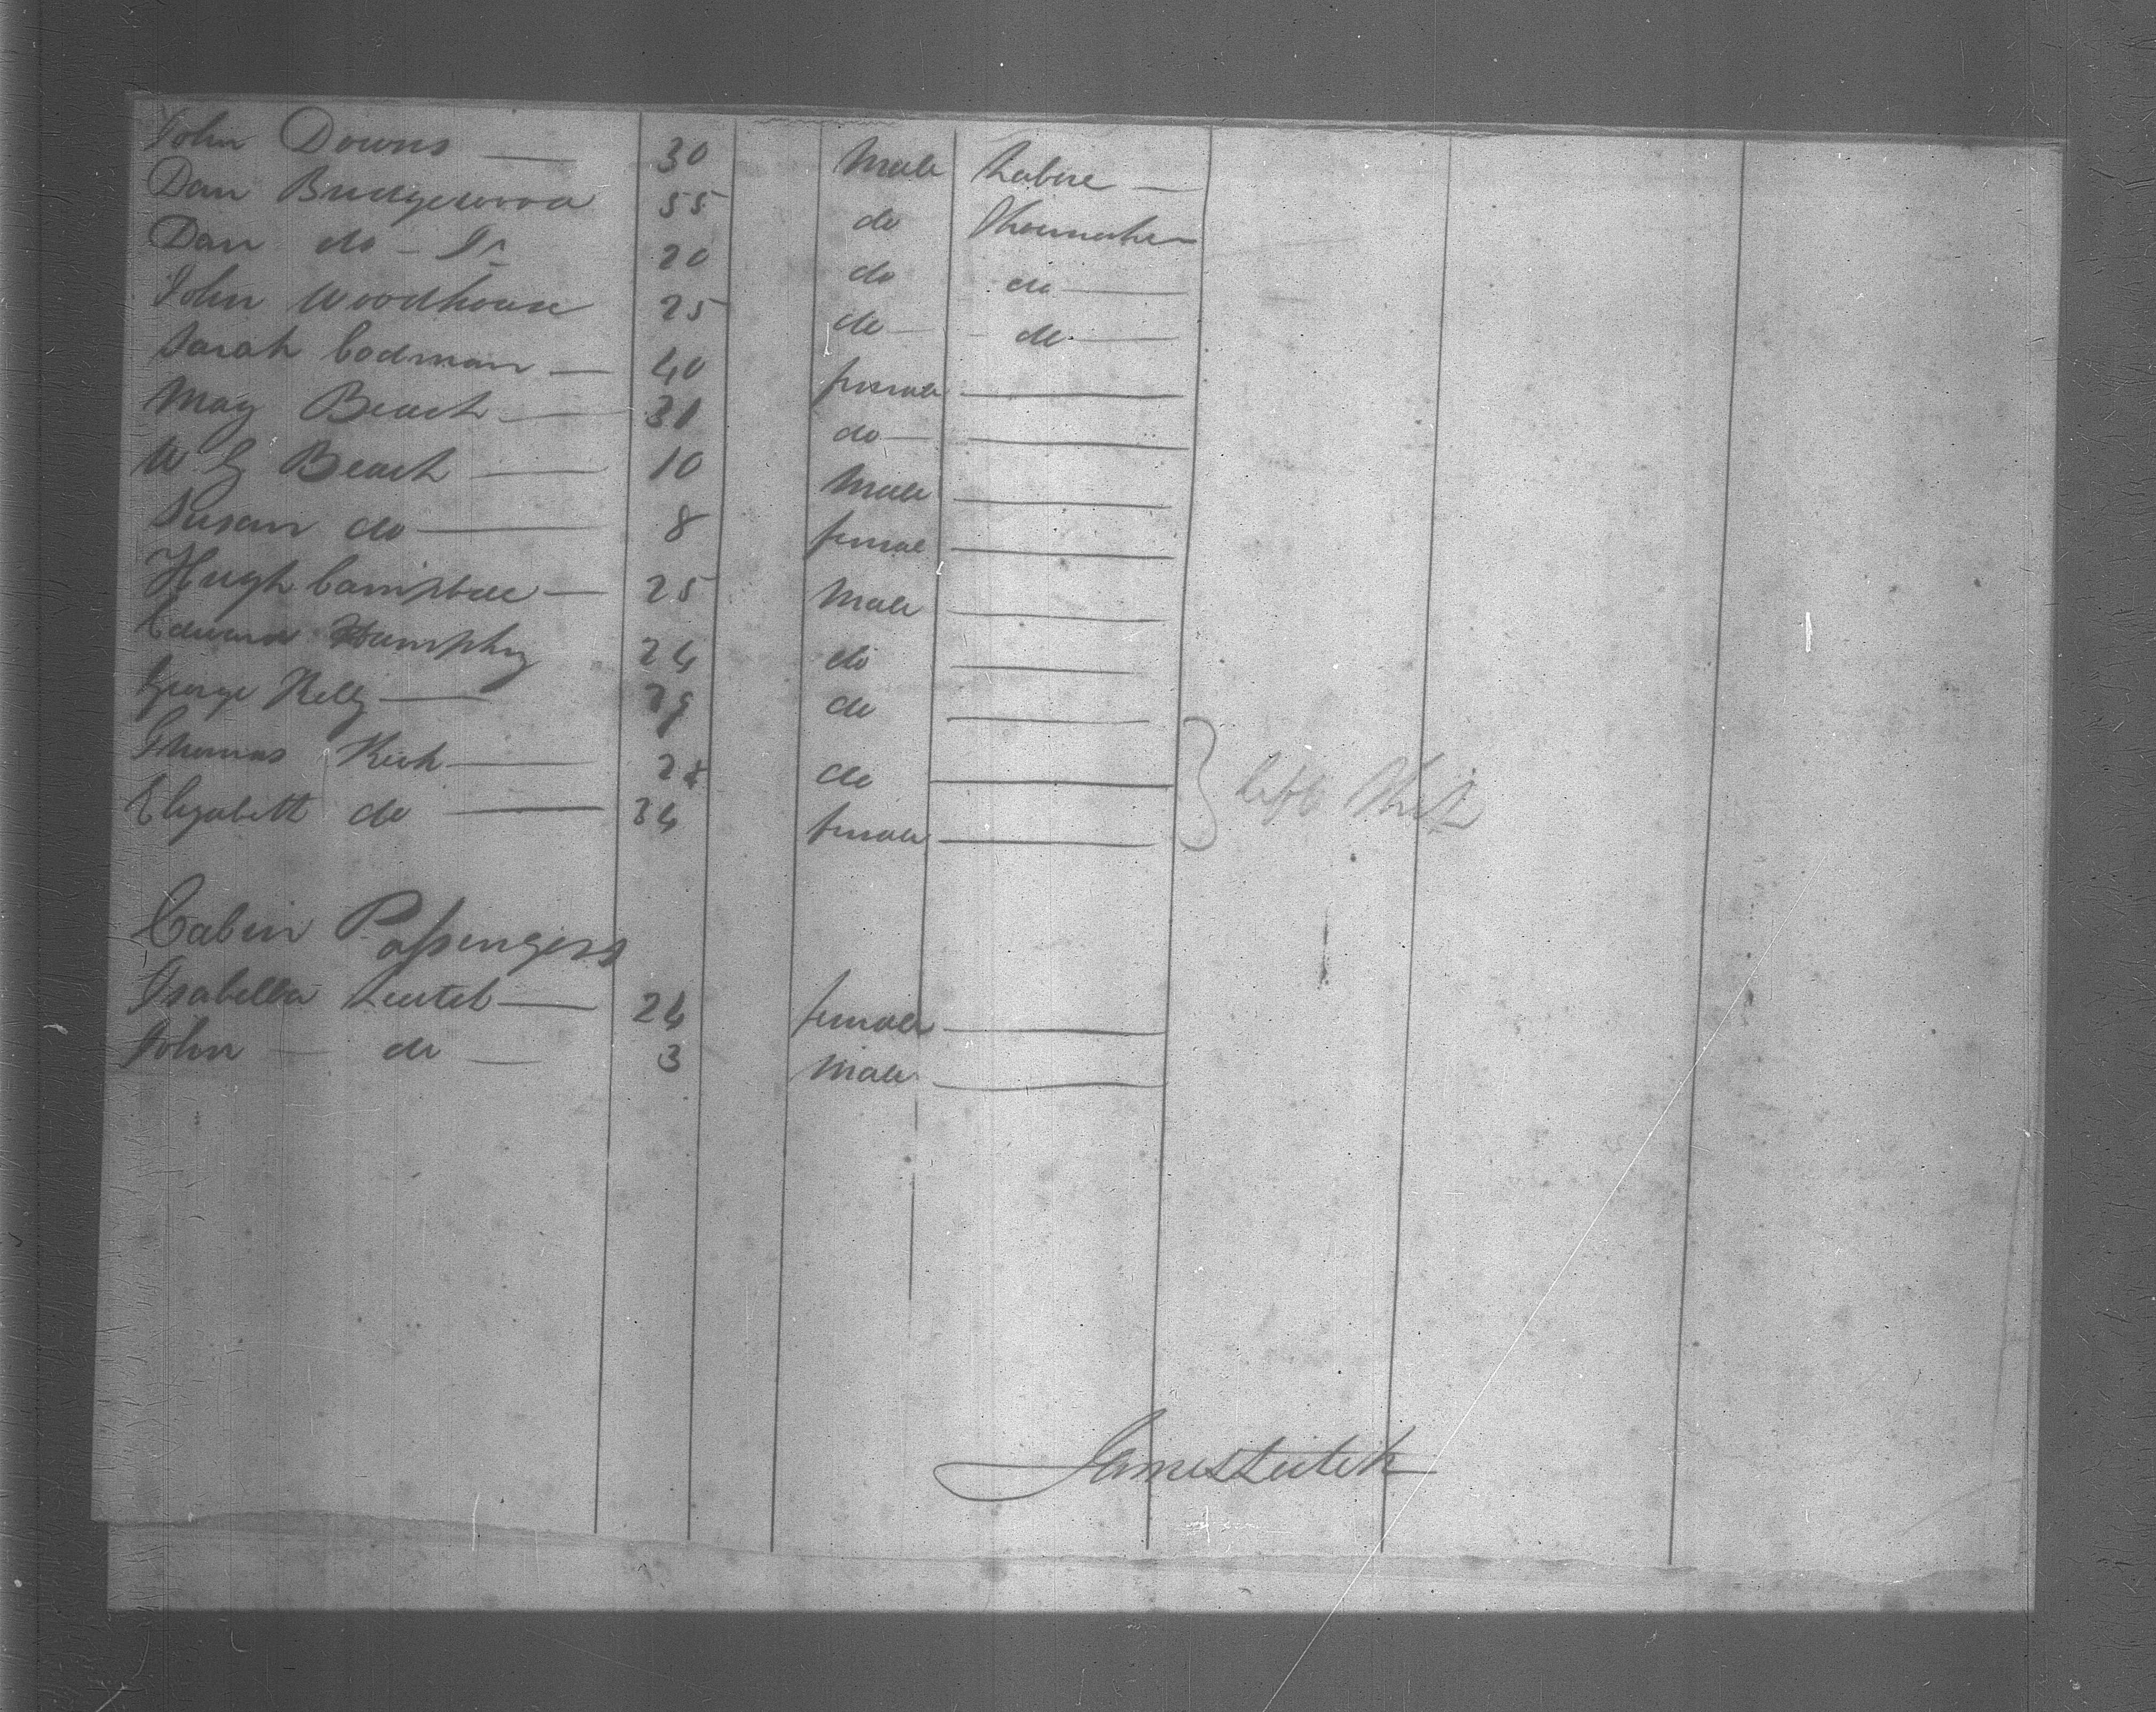 John Downs — 30 Male Labore —
Dan Bridgewood 55 do Shoemaker
Dan do - Jr 20 do do —
John Woodhouse 25 do — do —
Sarah Codman — 40 female —
May Beach — 31 do —
W G Beach — 10 Male —
Susan do — 8 female —
Hugh Campbell — 25 Male —
Edward Humphry 24 do —
George Kelly — 29 do —
Thomas Kirk — 24 do —
Elizabeth do — 24 female —
left
Cabin Passengers
Isabella — 24 female —
John — do — 3 Male —
James